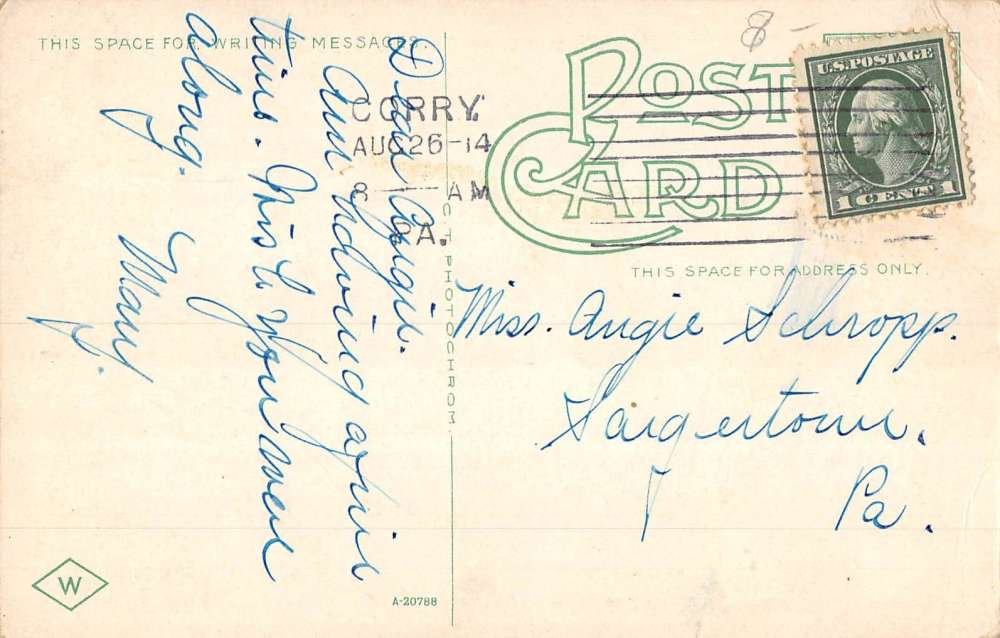 THIS SPACE FOR WRITING MESSAGES.
8
POST
CARD
U.S. POSTAGE
1 CENTS 1
CORRY.
AUG 26-14
8 AM
PA.
THIS SPACE FOR ADDRESS ONLY.
Dear Angie.
Am having a fine
time. Wish you were
along.
Mary.
Miss. Angie Schropp.
Saegertown.
Pa.
C.T. PHOTOCHROM
W
A-20788